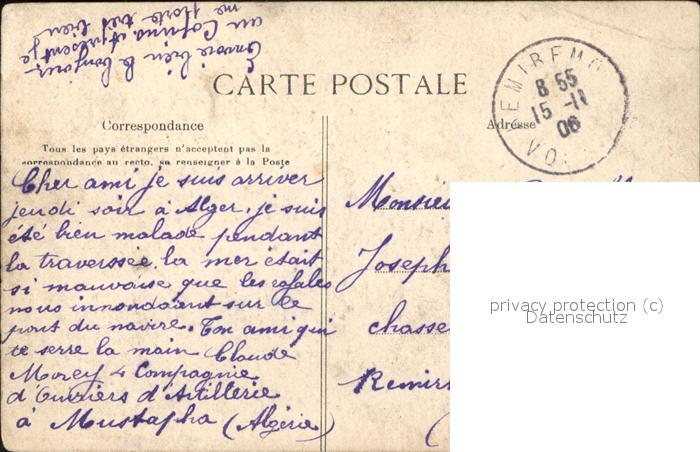 Envoie bien le bonjour
au Copains, à présent je
me porte très bien
CARTE POSTALE
Correspondance
Tous les pays étrangers n'acceptent pas la
correspondance au recto, se renseigner à la Poste
Cher ami je suis arriver
jeudi soir à Alger, je suis
été bien malade pendant
la traverssée, la mer était
si mauvaise que les rafales
nous innondaent sur le
pont du navire. Ton ami qui
te serre la main Claude
Morey 4 Compagnie
d'Ouvriers d'Artillerie
à Mustapha (Algérie)
Adresse
EMIREMO
8 55
15 -11
06
VO
Monsieu
Joseph
chasse
Remir
(
privacy protection (c)
Datenschutz